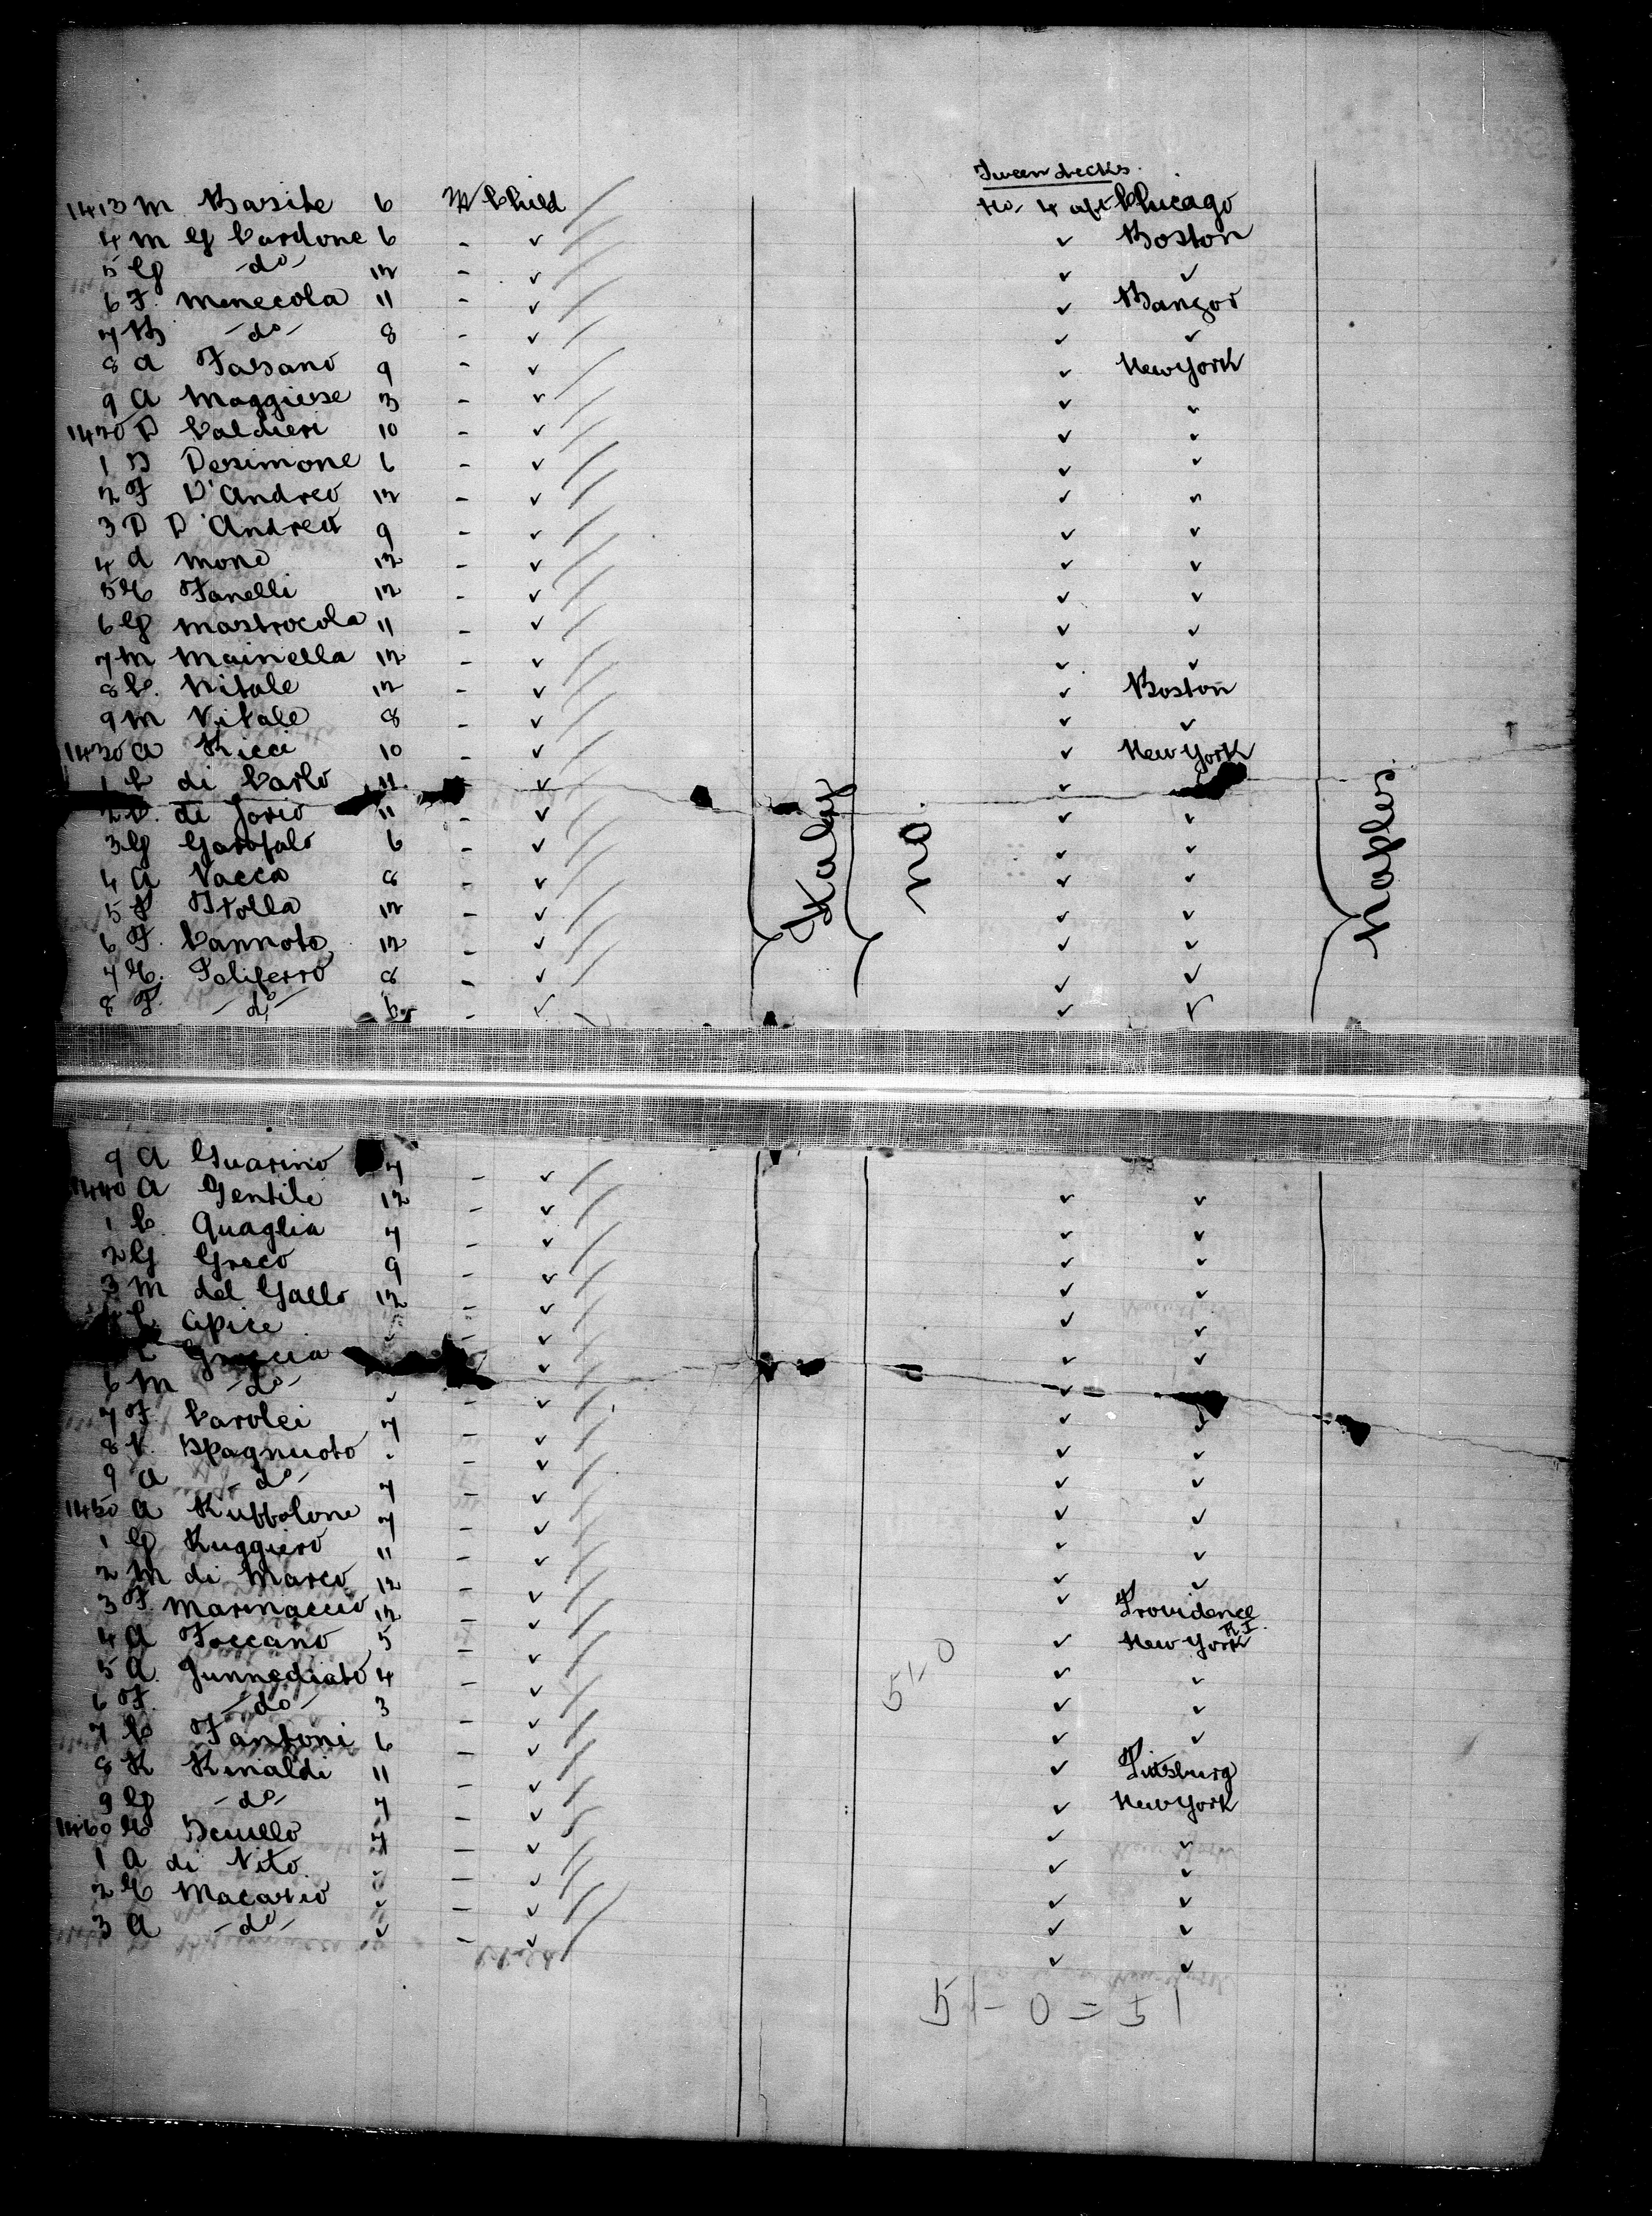 Tween decks.
1413 M Basile 6 M Child No. 4 aft Chicago
4 M G Cardone 6 - ✓ ✓ Boston
5 G -do- 12 - ✓ ✓ ✓
6 F. Menecola 11 - ✓ ✓ Bangor
7 B -do- 8 - ✓ ✓ ✓
8 A Fasano 9 - ✓ ✓ New York
9 A Maggiese 3 - ✓ ✓ ✓
1420 D Caldieri 10 - ✓ ✓ ✓
1 D Desimone 6 - ✓ ✓ ✓
2 F D'Andreo 12 - ✓ ✓ ✓
3 D D'Andrea 9 - ✓ ✓ ✓
4 A Mone 12 - ✓ ✓ ✓
5 E Fanelli 12 - ✓ ✓ ✓
6 G Mastrocola 11 - ✓ ✓ ✓
7 M Mainella 12 - ✓ ✓ ✓
8 C. Vitale 12 - ✓ ✓ Boston
9 M Vitale 8 - ✓ ✓ ✓
1430 A Ricci 10 - ✓ ✓ New York
1 C di Carlo 11 ✓ ✓
2 di Jorio 11 - ✓ ✓ ✓
3 G Garofalo 6 - ✓ ✓ ✓
4 A Vacca 8 - ✓ ✓ ✓
5 Stolla 12 - ✓ ✓ ✓
6 F. Cannoto 12 - ✓ ✓ ✓
7 E. Taliferro 8 - ✓ ✓ ✓
8 F. -do- 6 - ✓ ✓ ✓
Italy
no.
Naples.
9 A Guarino 7 - ✓
1440 A Gentile 12 - ✓ ✓ ✓
1 C. Quaglia 7 - ✓ ✓ ✓
2 G Greco 9 - ✓ ✓ ✓
3 M del Gallo 12 - ✓ ✓ ✓
Apice ✓ - ✓ ✓ ✓
✓ ✓ ✓
6 M -do- ✓ - ✓ ✓
7 F. Carolei 7 - ✓ ✓ ✓
8 V. Spagnuoto - ✓ ✓ ✓
9 A -do- 7 - ✓ ✓ ✓
1450 A Ruffolone 7 - ✓ ✓ ✓
1 G Ruggiero 11 - ✓ ✓ ✓
2 M di Marco 12 - ✓ ✓ ✓
3 F. Marinaccio 12 - ✓ ✓ Providence R.I.
4 A Toccano 5 - ✓ ✓ New York
5 A Junnediato 4 - ✓ ✓ ✓
6 F. -do- 3 - ✓ ✓ ✓
7 C Fantoni 6 - ✓ ✓ ✓
8 R Rinaldi 11 - ✓ ✓ Pittsburg
9 G -do- 7 - ✓ ✓ New York
1460 E 7 - ✓ ✓ ✓
1 A di Vito - ✓ ✓ ✓
2 E Macario ✓ - ✓ ✓ ✓
3 A -do- ✓ - ✓ ✓ ✓
51-0
51-0 = 51